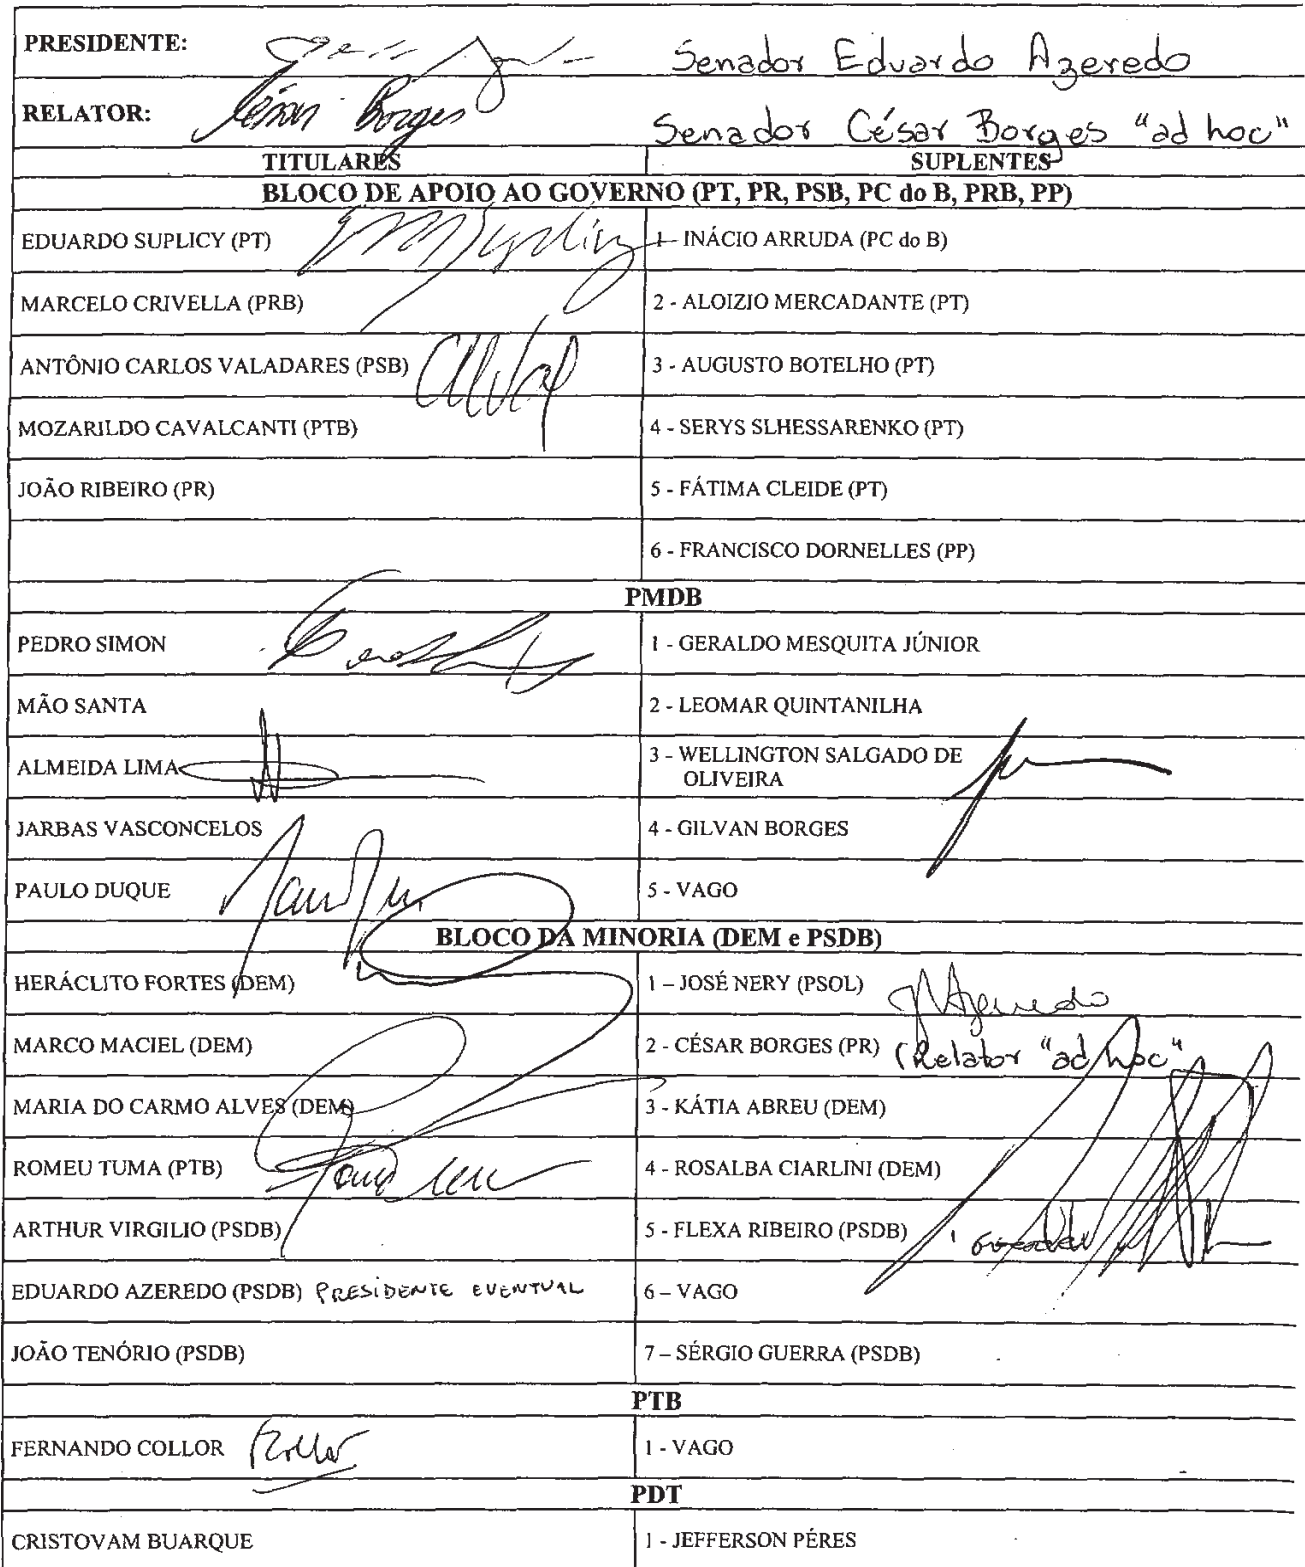 PRESIDENTE: Senador Eduardo Azeredo
RELATOR: César Borges Senador César Borges "ad hoc"
TITULARES SUPLENTES
BLOCO DE APOIO AO GOVERNO (PT, PR, PSB, PC do B, PRB, PP)
EDUARDO SUPLICY (PT) 1 - INÁCIO ARRUDA (PC do B)
MARCELO CRIVELLA (PRB) 2 - ALOIZIO MERCADANTE (PT)
ANTÔNIO CARLOS VALADARES (PSB) 3 - AUGUSTO BOTELHO (PT)
MOZARILDO CAVALCANTI (PTB) 4 - SERYS SLHESSARENKO (PT)
JOÃO RIBEIRO (PR) 5 - FÁTIMA CLEIDE (PT)
6 - FRANCISCO DORNELLES (PP)
PMDB
PEDRO SIMON 1 - GERALDO MESQUITA JÚNIOR
MÃO SANTA 2 - LEOMAR QUINTANILHA
ALMEIDA LIMA 3 - WELLINGTON SALGADO DE
OLIVEIRA
JARBAS VASCONCELOS 4 - GILVAN BORGES
PAULO DUQUE 5 - VAGO
BLOCO DA MINORIA (DEM e PSDB)
HERÁCLITO FORTES (DEM) 1 – JOSÉ NERY (PSOL)
MARCO MACIEL (DEM) 2 - CÉSAR BORGES (PR) (Relator "ad hoc"
MARIA DO CARMO ALVES (DEM) 3 - KÁTIA ABREU (DEM)
ROMEU TUMA (PTB) 4 - ROSALBA CIARLINI (DEM)
ARTHUR VIRGILIO (PSDB) 5 - FLEXA RIBEIRO (PSDB)
EDUARDO AZEREDO (PSDB) PRESIDENTE EVENTUAL 6 – VAGO
JOÃO TENÓRIO (PSDB) 7 – SÉRGIO GUERRA (PSDB)
PTB
FERNANDO COLLOR Collor 1 - VAGO
PDT
CRISTOVAM BUARQUE 1 - JEFFERSON PÉRES